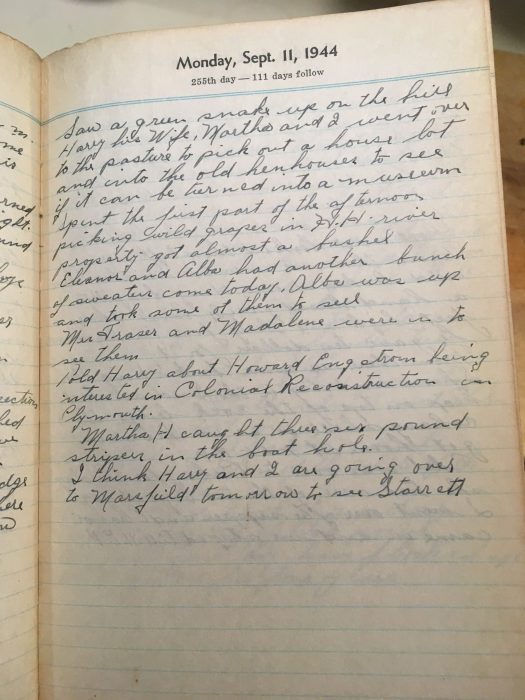 Monday, Sept. 11, 1944
255th day — 111 days follow
Saw a green snake up on the hill
Harry his Wife, Martha and I went over
to the pasture to pick out a house lot
and into the old henhouses to see
if it can be turned into a museum
Spent the first part of the afternoon
picking wild grapes in H.H. river
property got almost a bushel
Eleanor and Alba had another bunch
of sweaters come today, Alba was up
and took some of them to sell
Mrs Fraser and Madalene were in to
see them
Told Harry about Howard Engstrom being
interested in Colonial Reconstruction in
Plymouth.
Martha H caught three six pound
stripers in the boat hole.
I think Harry and I are going over
to Marsfield tomorrow to see Starrett